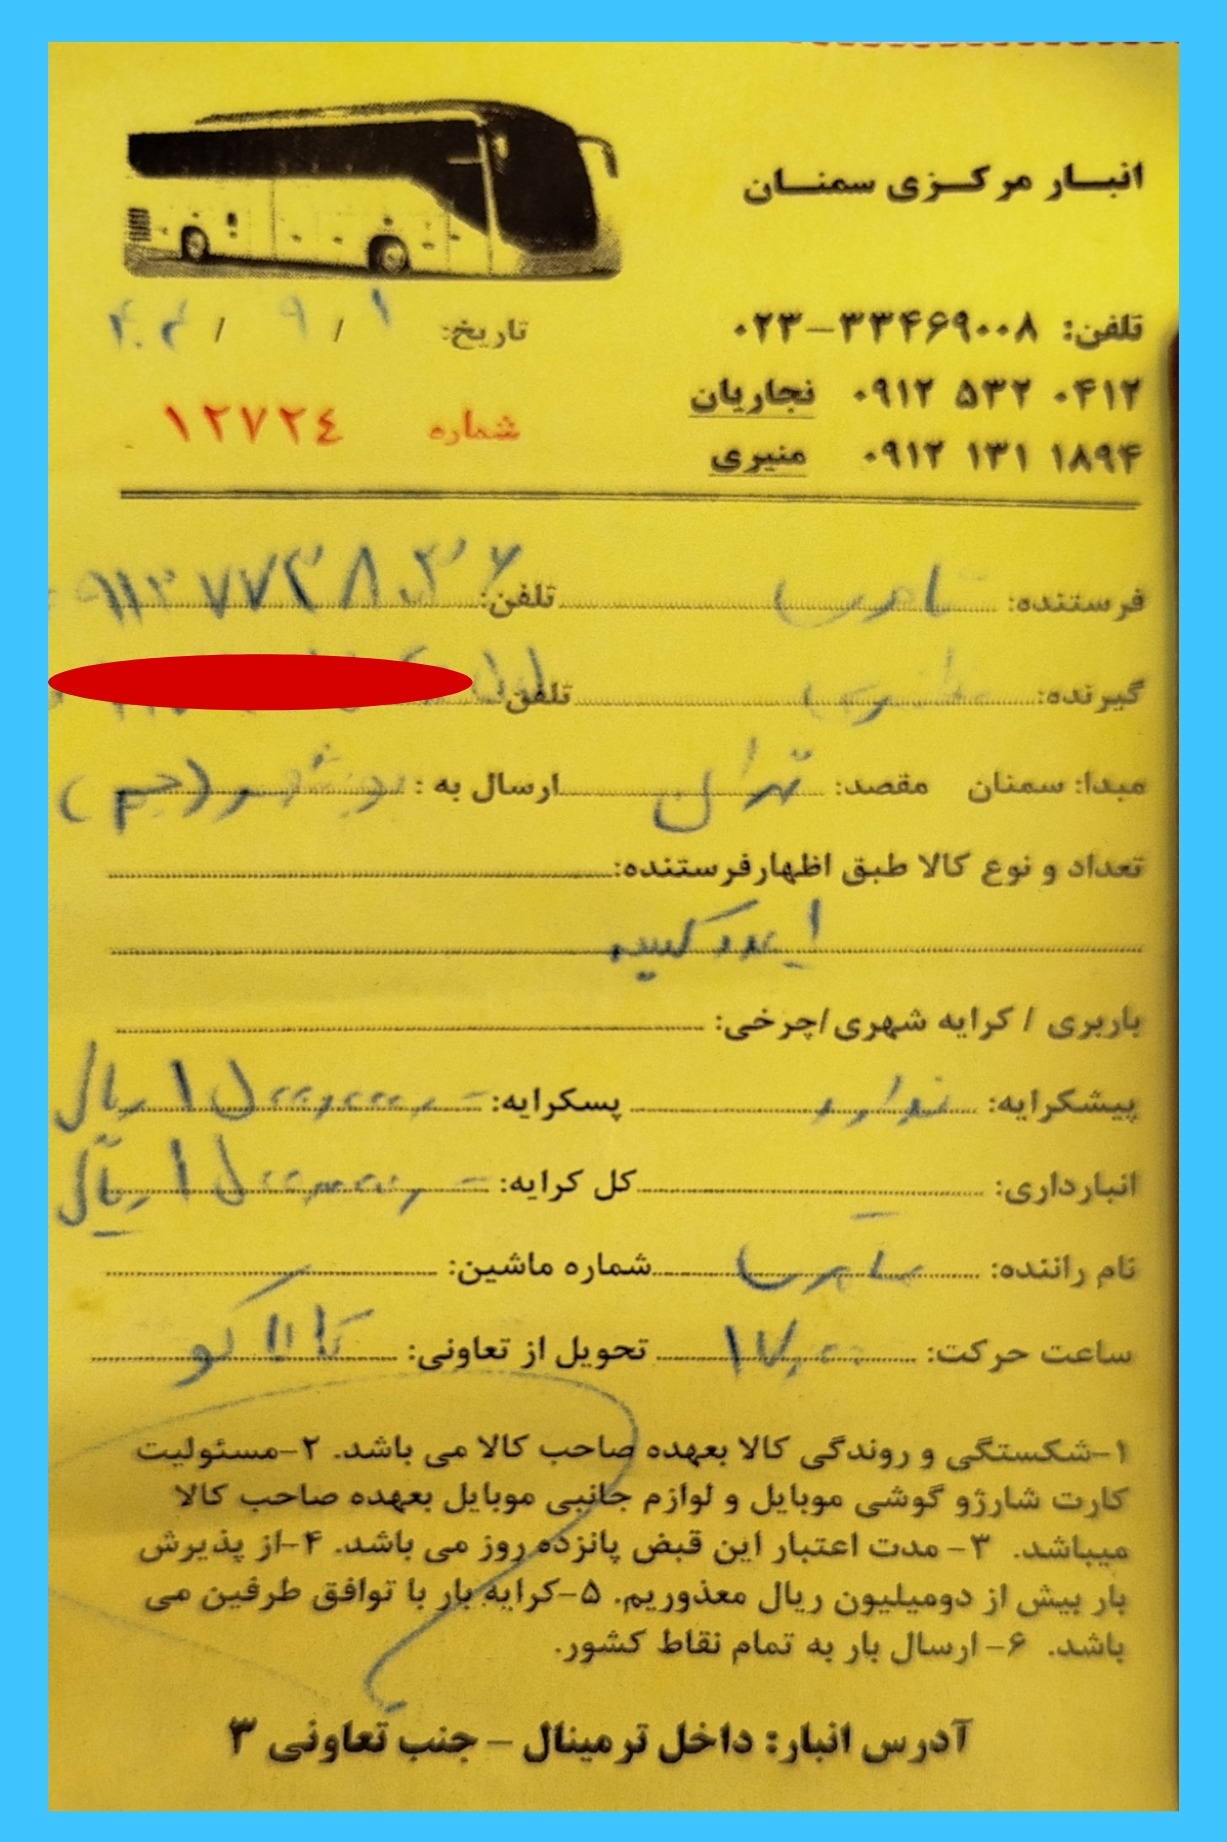 انبار مرکزی سمنان
تلفن: ۰۲۳-۳۳۴۶۹۰۰۸
تاریخ: ۱ / ۹ /
۰۹۱۲ ۵۳۲ ۰۴۱۲ نجاریان
شماره ۱۲۷۲٤
۰۹۱۲ ۱۳۱ ۱۸۹۴ منیری
فرستنده: تلفن:
گیرنده: تلفن:
مبدا: سمنان مقصد: تهران ارسال به :
تعداد و نوع کالا طبق اظهارفرستنده:
۱ عدد کیسه
باربری / کرایه شهری/چرخی:
پیشکرایه: ندارد پسکرایه: ریال
انبارداری: کل کرایه: ریال
نام راننده: شماره ماشین:
ساعت حرکت: ۱۷:۰۰ تحویل از تعاونی:
۱-شکستگی و روندگی کالا بعهده صاحب کالا می باشد. ۲-مسئولیت
کارت شارژو گوشی موبایل و لوازم جانبی موبایل بعهده صاحب کالا
میباشد. ۳- مدت اعتبار این قبض پانزده روز می باشد. ۴-از پذیرش
بار بیش از دومیلیون ریال معذوریم. ۵-کرایه بار با توافق طرفین می
باشد. ۶- ارسال بار به تمام نقاط کشور.
آدرس انبار: داخل ترمینال - جنب تعاونی ۳